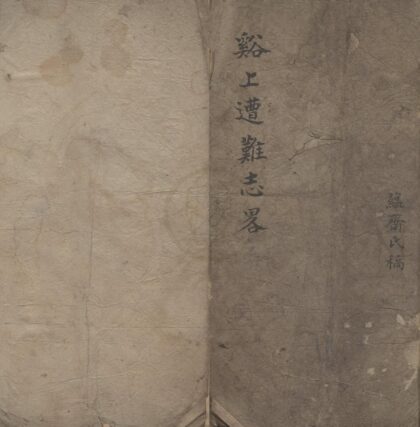 谿上遭難志畧
齋氏稿